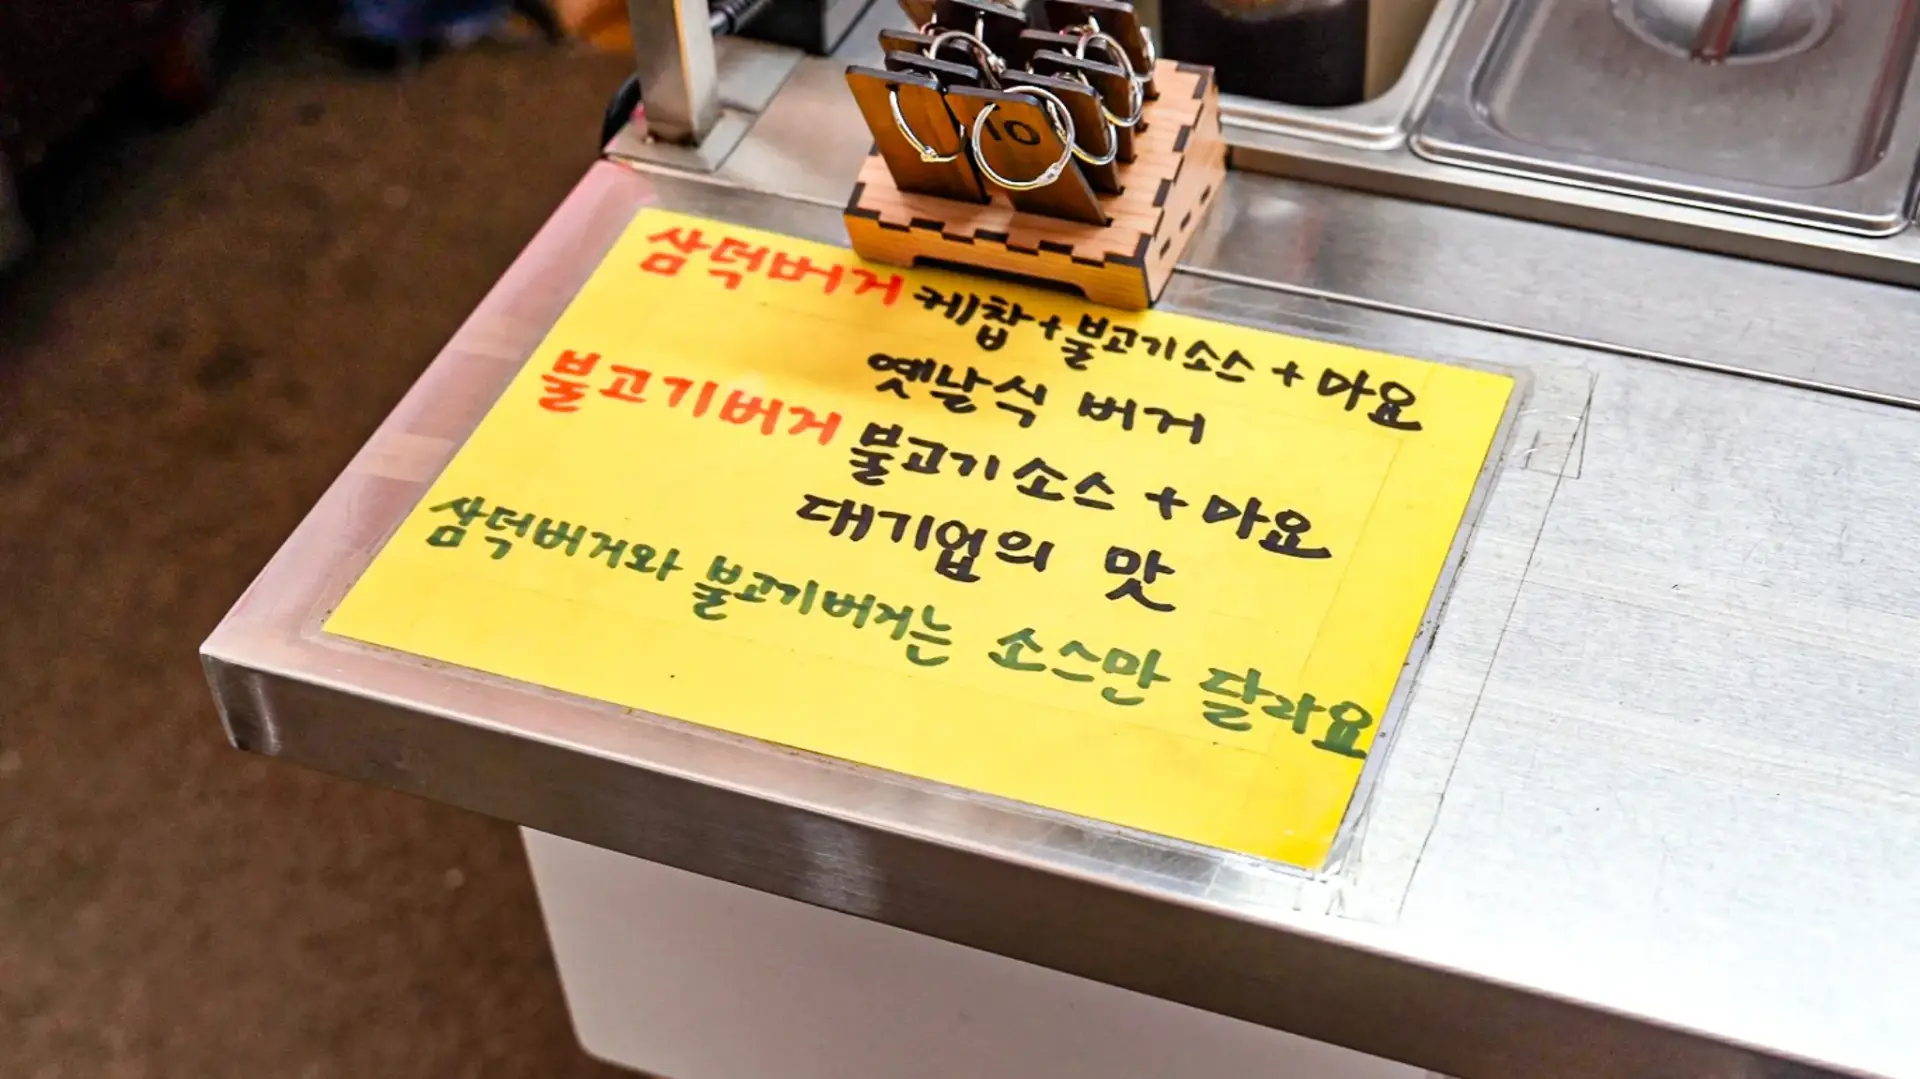 10
삼덕버거 케찹+불고기소스+마요
옛날식 버거
불고기버거 불고기소스+마요
대기업의 맛
삼덕버거와 불고기버거는 소스만 달라요